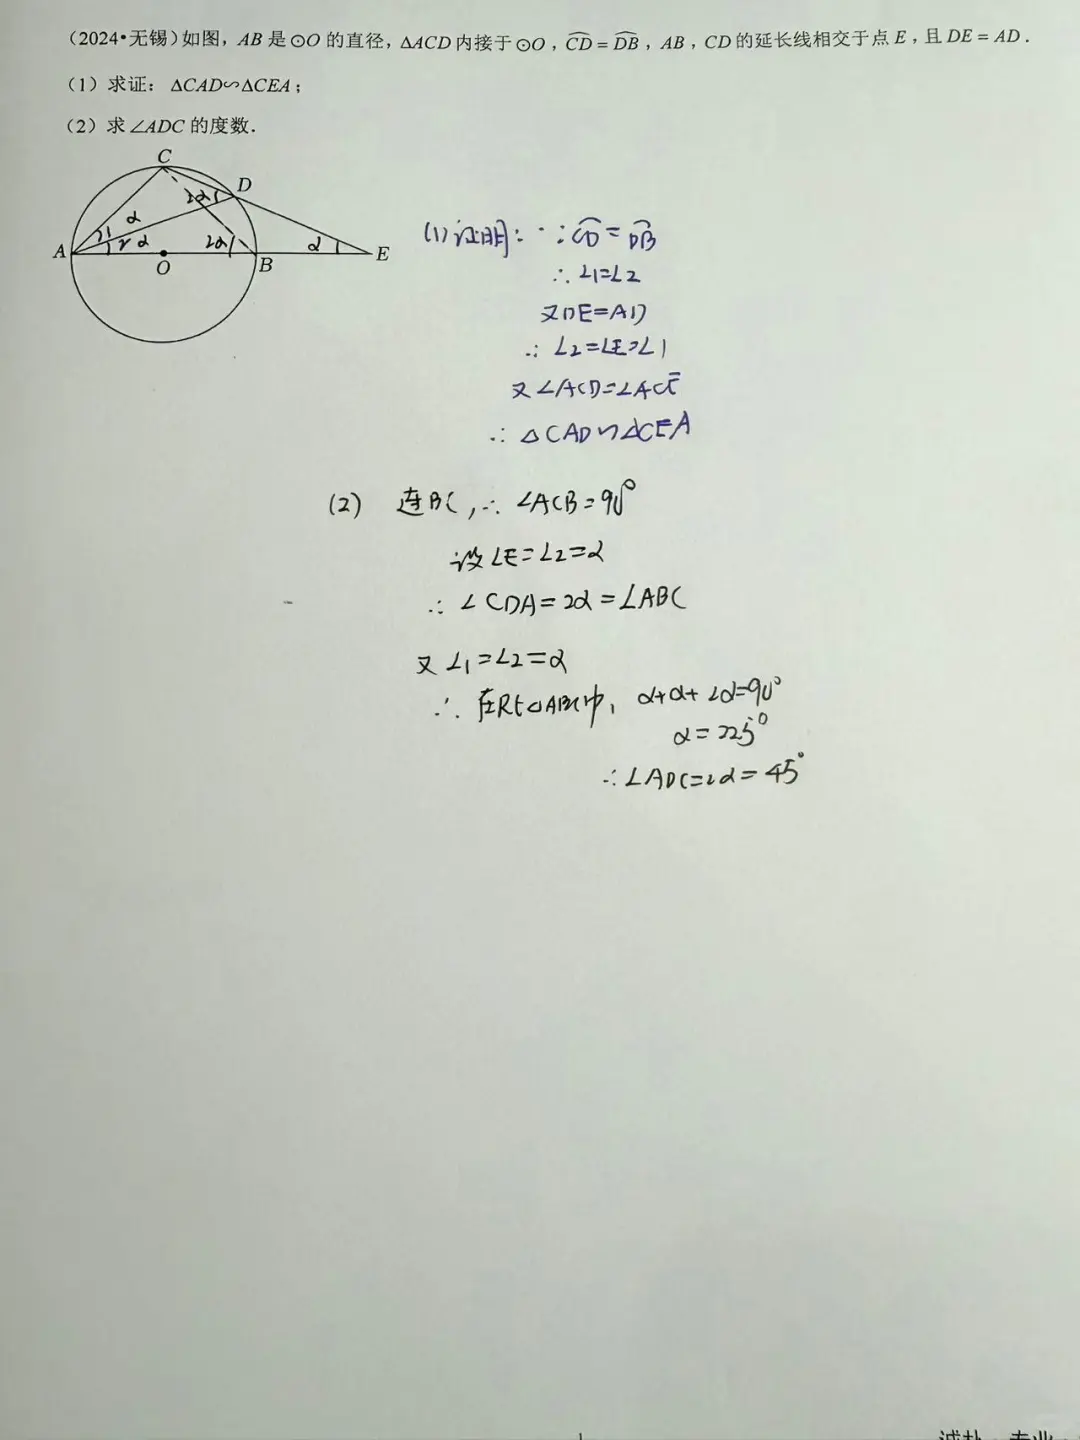 (2024•无锡)如图，AB 是⊙O 的直径，△ACD 内接于⊙O，$\overset{\frown}{CD}=\overset{\frown}{DB}$，AB，CD 的延长线相交于点 E，且 DE = AD．
（1）求证：△CAD∽△CEA；
（2）求∠ADC 的度数．
C
2α D
α
1
A 2 α 2α α E
O B
(1)证明：∵ $\overset{\frown}{CD}=\overset{\frown}{DB}$
∴ ∠1=∠2
又DE=AD
∴ ∠2=∠E=∠1
又∠ACD=∠ACE
∴ △CAD∽△CEA
(2) 连BC，∴ ∠ACB=90°
设∠E=∠2=α
∴ ∠CDA=2α=∠ABC
又∠1=∠2=α
∴ 在Rt△ABC中，α+α+2α=90°
α=22.5°
∴∠ADC=2α=45°